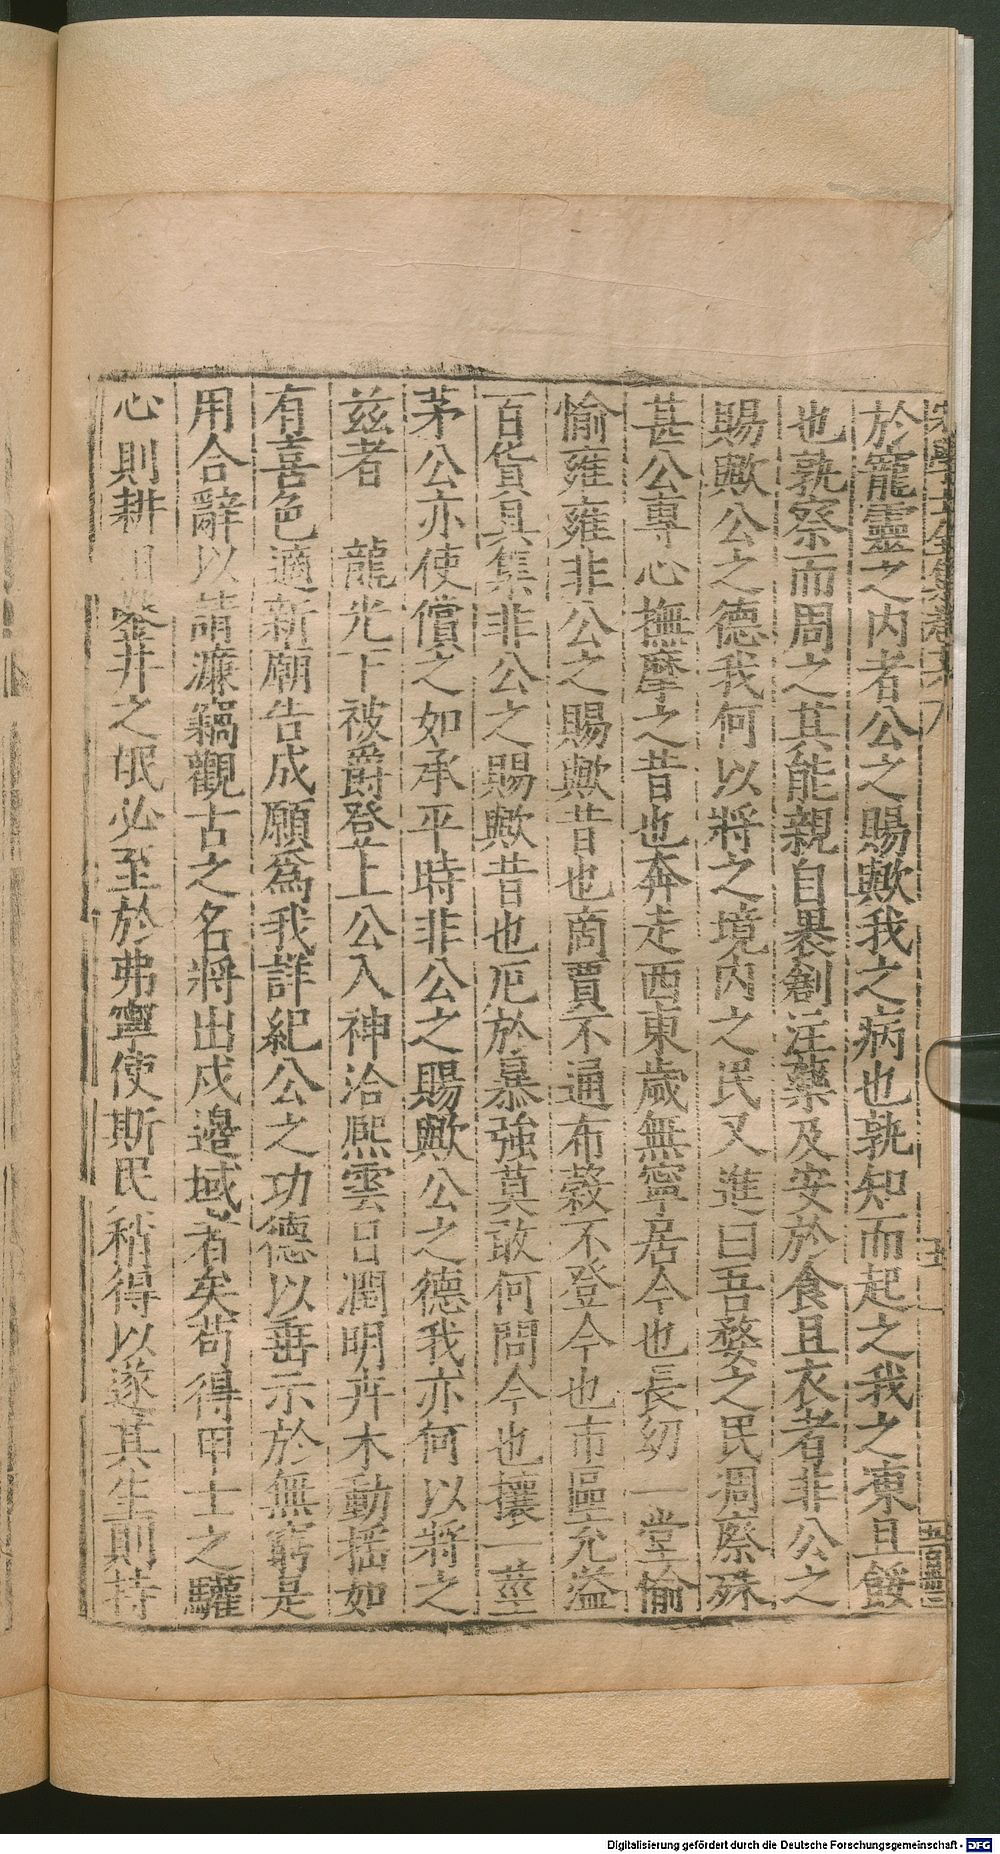 於寵靈之内者公之賜歟我之病也孰知而起之我之凍且餒
也孰察而周之其能親自裹創注藥及安於食且衣者非公之
賜歟公之德我何以將之境内之民又進曰吾婺之民凋瘵殊
甚公專心撫摩之昔也奔走西東歲無寧居今也長幼一堂愉
愉雍雍非公之賜歟昔也商賈不通布穀不登今也市區充溢
百貨具集非公之賜歟昔也厄於暴強莫敢何問今也攘一莖
茅公亦使償之如承平時非公之賜歟公之德我亦何以將之
兹者　龍光下被爵登上公入神洽熈雲日潤明卉木動揺如
有喜色適新廟告成願爲我詳紀公之功德以垂示於無窮是
用合辭以請濂竊觀古之名將出戍邊域者矣苟得甲士之驩
心則耕 井之氓必至於弗寧使斯民稍得以遂其生則持
五
Digitalisierung gefördert durch die Deutsche Forschungsgemeinschaft - DFG